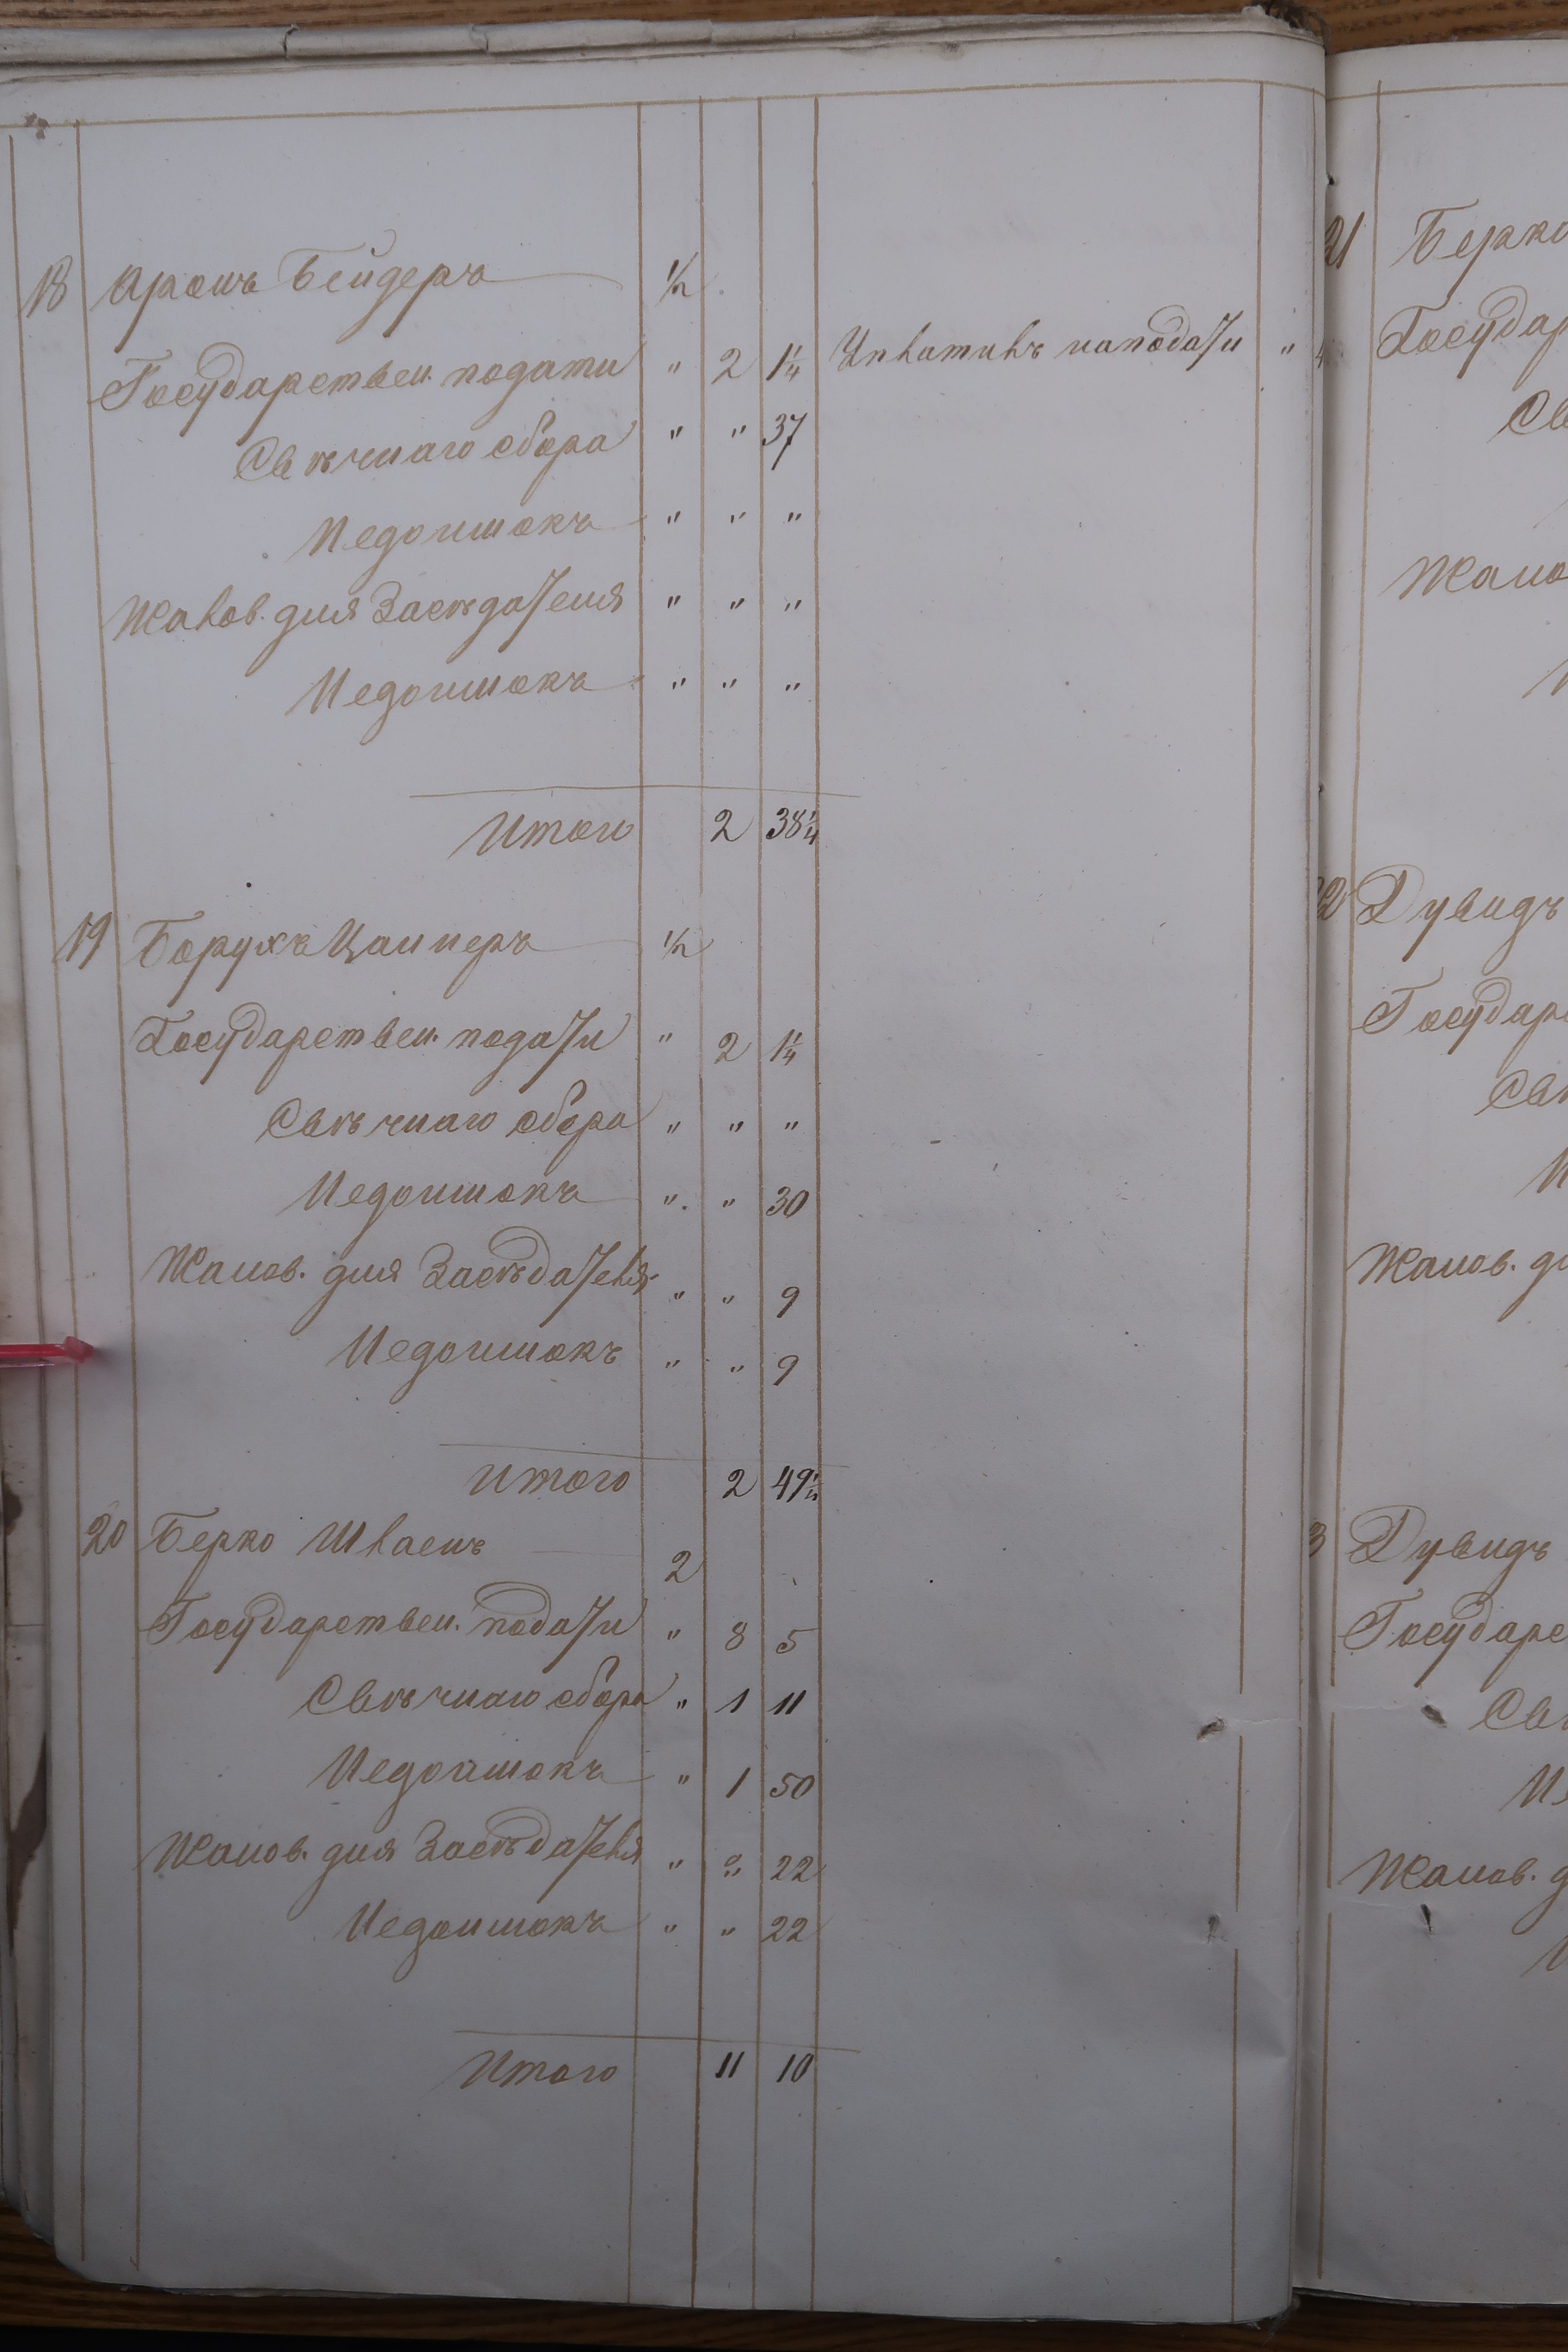 18 Аронъ Бейдеръ 1/2
Государствен. подати " 2 1 1/4 Уплатилъ наподати "
Свѣчнаго сбора " " 37
Недоимокъ " " "
Жалов. для Засѣдателя " " "
Недоимокъ " " "
Итого 2 38 1/4
19 Борухъ Цаперъ 1/2
Государствен. подати " 2 1 1/4
Свѣчнаго сбора " " "
Недоимокъ " " 30
Жалов. для Засѣдателя " " 9
Недоимокъ " " 9
Итого 2 49
20 Берко 2
Государствен. подати " 8 5
Свѣчнаго сбора " 1 11
Недоимокъ " 1 50
Жалов. для Засѣдателя " " 22
Недоимокъ " " 22
Итого 11 10
21 Берко
Государ
Св
Жало
Дувидъ
Государс
Свѣ
Жалов. дл
Дувидъ
Государс
Свѣ
Не
Жалов. д